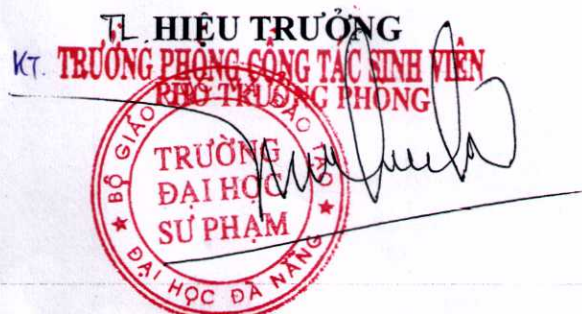 TL. HIỆU TRƯỞNG
KT. TRƯỞNG PHÒNG CÔNG TÁC SINH VIÊN
PHÓ TRƯỞNG PHÒNG
BỘ GIÁO DỤC VÀ ĐÀO TẠO
TRƯỜNG
ĐẠI HỌC
SƯ PHẠM
★ ĐẠI HỌC ĐÀ NẴNG ★